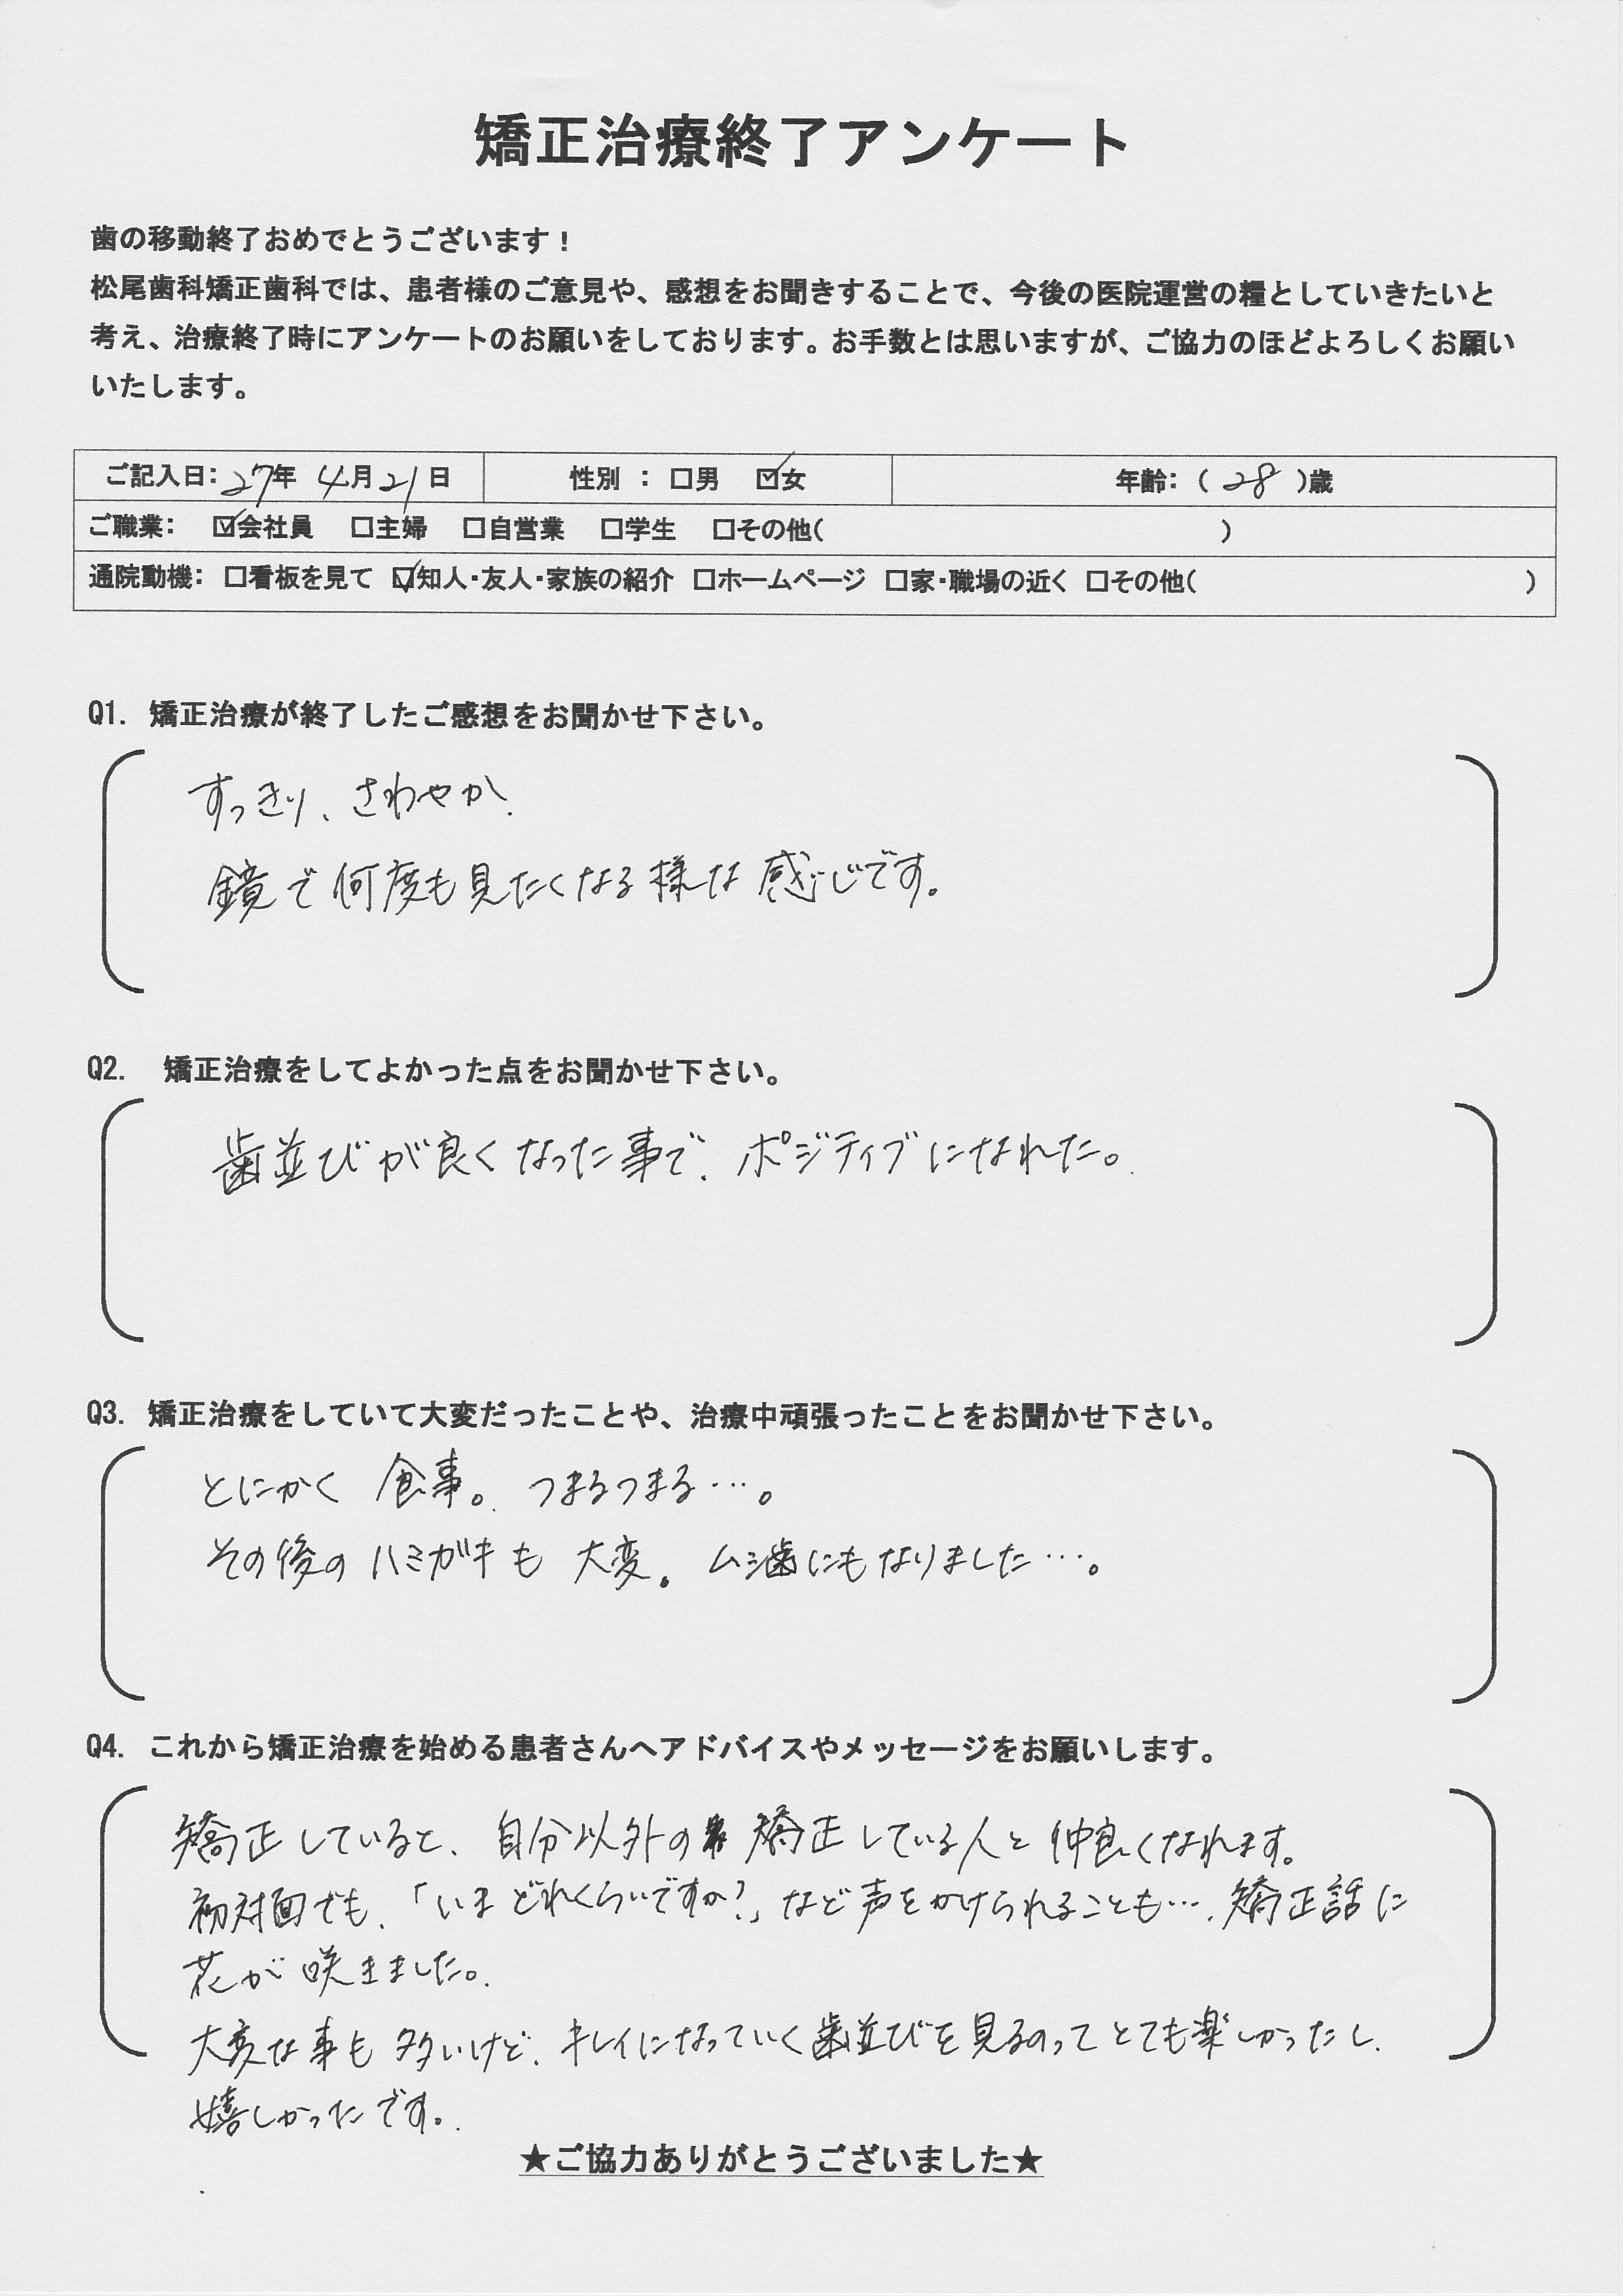 矯正治療終了アンケート
歯の移動終了おめでとうございます！
松尾歯科矯正歯科では、患者様のご意見や、感想をお聞きすることで、今後の医院運営の糧としていきたいと
考え、治療終了時にアンケートのお願いをしております。お手数とは思いますが、ご協力のほどよろしくお願い
いたします。
ご記入日：27年 4月21日 性別 ： □男 ☑女 年齢：（ 28 ）歳
ご職業： ☑会社員 □主婦 □自営業 □学生 □その他（ ）
通院動機： □看板を見て ☑知人・友人・家族の紹介 □ホームページ □家・職場の近く □その他（ ）
Q1. 矯正治療が終了したご感想をお聞かせ下さい。
すっきり、さわやか、
鏡で何度も見たくなる様な感じです。
Q2. 矯正治療をしてよかった点をお聞かせ下さい。
歯並びが良くなった事で、ポジティブになれた。
Q3. 矯正治療をしていて大変だったことや、治療中頑張ったことをお聞かせ下さい。
とにかく 食事。つまるつまる…。
その後のハミガキも 大変。ムシ歯にもなりました…。
Q4. これから矯正治療を始める患者さんへアドバイスやメッセージをお願いします。
矯正していると、自分以外の矯正している人と仲良くなれます。
初対面でも、「いまどれくらいですか？」など声をかけられることも…、矯正話に
花が咲きました。
大変な事も多いけど、キレイになっていく歯並びを見るのってとても楽しかったし、
嬉しかったです。
★ご協力ありがとうございました★